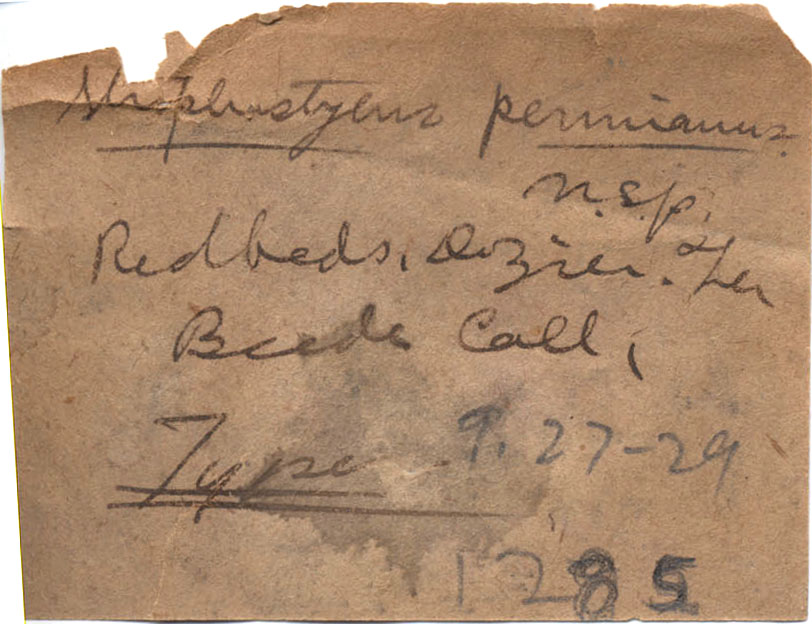 Strophostylus permianus
n.sp.
Redbeds. Dozier. Tex
Beede Coll.
Type 9. 27-29
1285